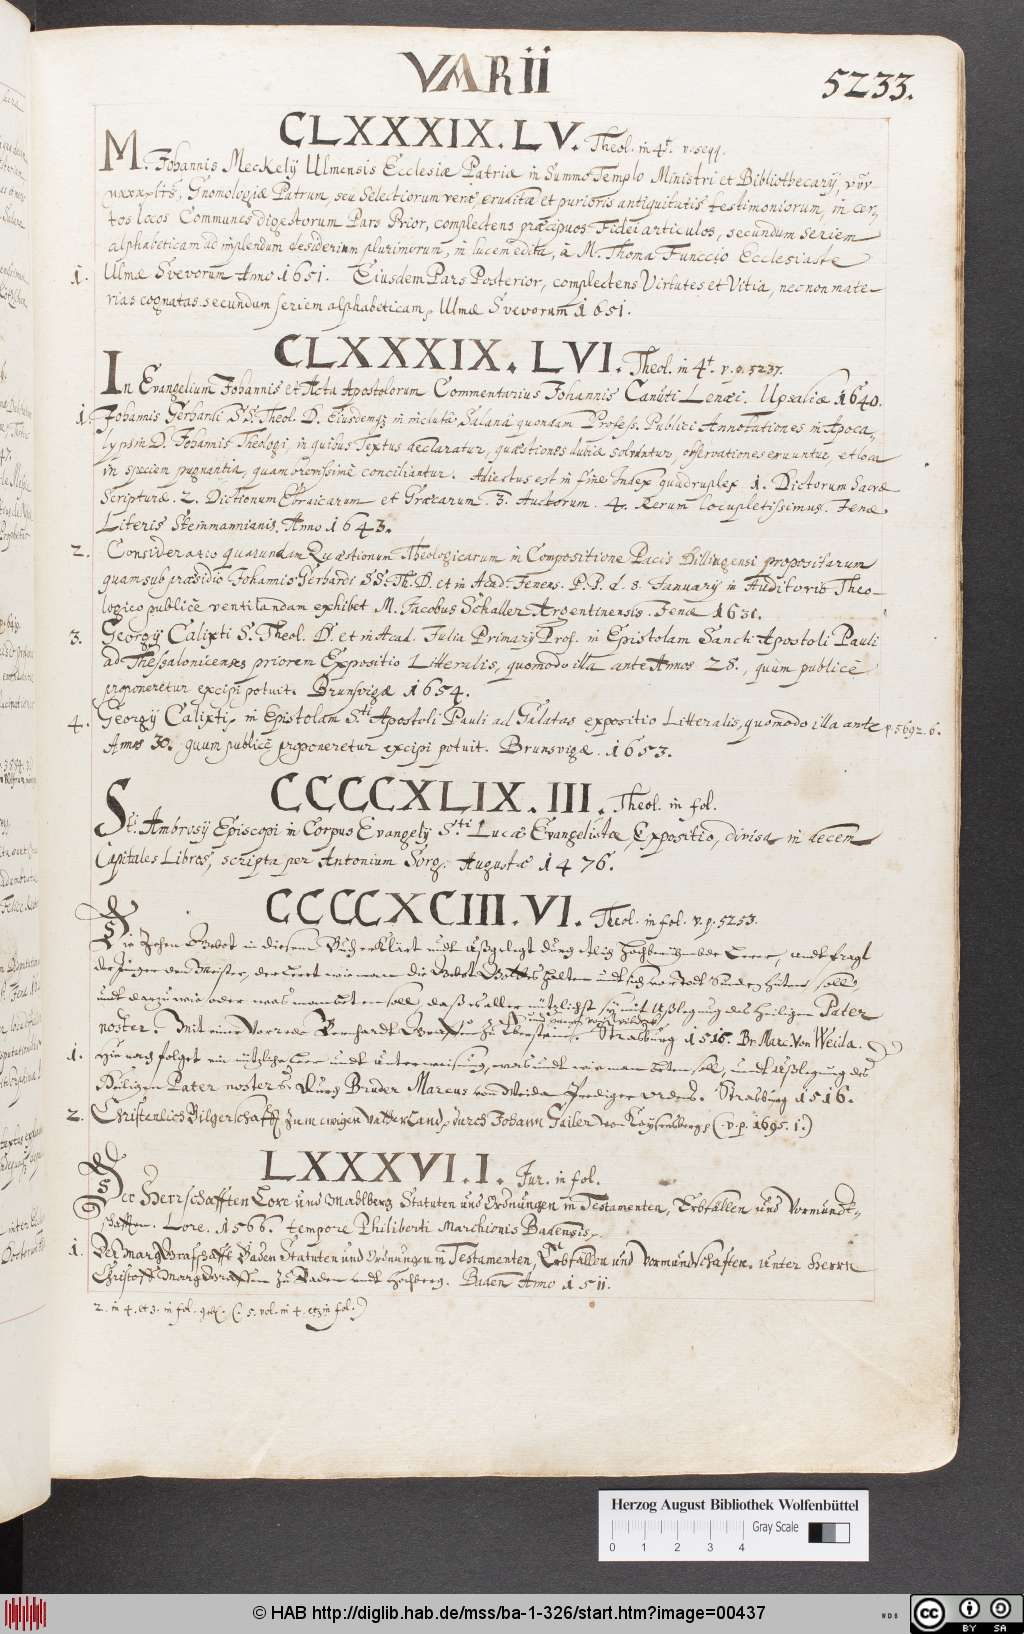 VARII
5233.
CLXXXIX. LV. Theol. in 4t. v. seqq.
M. Johannis Meckelij Ulmensis Ecclesiæ Patriæ in Summo Templo Ministri et Bibliothecarij,
Gnomologiæ Patrum, seu Selectiorum eruditæ et purioris antiquitatis testimoniorum, in cer-
tos locos Communes digestorum Pars Prior, complectens præcipuos Fidei articulos, secundum seriem
alphabeticam ad implendum desiderium plurimorum, in lucem edita, à M. Thoma Funccio Ecclesiaste
Ulmæ Svevorum Anno 1651.
1. Eiusdem Pars Posterior, complectens Virtutes et Vitia, nec non mate-
rias cognatas secundum seriem alphabeticam, Ulmæ Svevorum 1651.
CLXXXIX. LVI. Theol. in 4t. v. p. 5237.
In Evangelium Johannis et Acta Apostolorum Commentarius Johannis Canuti Lenæi. Upsaliæ 1640.
1. Johannis Gerhardi SS. Theol. D. Eiusdemq; in inclutâ Salanâ quondam Profess. Publici Annotationes in Apoca-
lypsin D. Johannis Theologi, in quibus Textus declaratur, quæstiones dubiæ solvuntur, observationes eruuntur et loca
in speciem pugnantia, quam brevissimè conciliantur. Adiectus est in fine Index quadruplex 1. Dictorum Sacræ
Scripturæ. 2. Dictionum Ebraicarum et Græcarum. 3. Auctorum. 4. Rerum locupletissimus. Jenæ
Literis Steinmannianis. Anno 1643.
2. Consideratio quarundam Quæstionum Theologicarum in Compositione Pacis Dillingensi propositarum
quam sub præsidio Johannis Gerhardi SS. Th. D. et in Acad. Jenens. P. P. d. 8. Januarij in Auditorio Theo-
logico publicè ventilandam exhibet M. Jacobus Schaller Argentinensis. Jenæ 1631.
3. Georgij Calixti S. Theol. D. et in Acad. Julia Primarij Prof. in Epistolam Sancti Apostoli Pauli
ad Thessalonicenses priorem Expositio Litteralis, quomodo illa ante Annos 28., quùm publicè
proponeretur excipi potuit. Brunsvigæ 1654.
4. Georgij Calixti, in Epistolam Sti Apostoli Pauli ad Galatas expositio Litteralis, quomodo illa ante p. 5692. 6.
Annos 30. quum publicè proponeretur excipi potuit. Brunsvigæ. 1653.
CCCCXLIX. III. Theol. in fol.
Sti. Ambrosij Episcopi in Corpus Evangelij Sti Lucæ Evangelistæ, Expositio, divisa in decem
Capitales Libros, scripta per Antonium Sorg. Augustæ 1476.
CCCCXCIII. VI. Theol. in fol. v. p. 5253.
Die Zehen Gebot in diesem Buch erklärt undt außgelegt durch etlich hochberümbte Lerer, undt fragt
der Jünger den Meister, der lert wie man die Gebot Gottes halten undt sich vor todt Sünden hüten soll,
undt darzu wie oder was man beten soll, das es aller nützlichst sey mit Außlegung des heiligen Pater
noster. Mit einer Vorrede Bernhardt Graffen zu Eberstein. Strasburg 1516. Br. Marc. Von Weida.
1. Hie nach folget ein nützliche Lere undt unterweisung, was undt wie man beten soll, undt Außlegung des
Heiligen Pater nosters. Durch Bruder Marcus von Weida Prediger ordens. Strasburg 1516.
2. Christenlich Bilgerschafft zum ewigen Vatterland, durch Johann Gailer von Kaysersberg, (v. p. 1695. 1.)
LXXXVI. I. Jur. in fol.
Der Herrschafften Lore und Mahlberg Statuten und Ordnungen in Testamenten, Erbfällen und Vormundt-
schafften. Lore. 1566. tempore Philiberti Marchionis Badensis.
1. Der MargGrafschafft Baden Statuten und Ordnungen in Testamenten, Erbfällen und Vormundschaften. Unter Herrn
Christoff MargGraffen zu Baden undt Hochberg. Baden Anno 1511.
2. in 4. et 3. in fol. (. 5. vol. in 4. et in fol.)
Herzog August Bibliothek Wolfenbüttel
Gray Scale
0 1 2 3 4
© HAB http://diglib.hab.de/mss/ba-1-326/start.htm?image=00437
WDB
cc BY SA